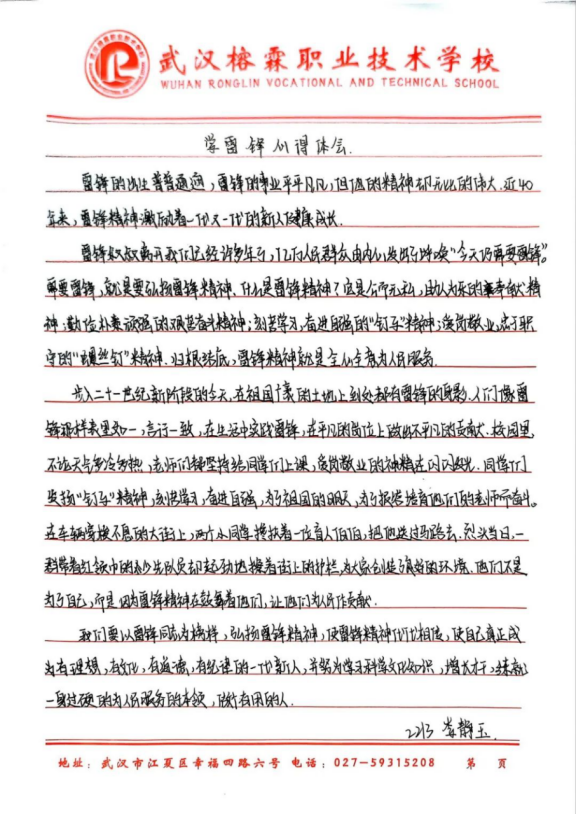 武汉榕霖职业技术学校
WUHAN RONGLIN VOCATIONAL AND TECHNICAL SCHOOL
学雷锋心得体会.
雷锋的出生普普通通,雷锋的事业平平凡凡,但他的精神却无比的伟大.近40
年来,雷锋精神激励着一代又一代的新人健康成长.
雷锋叔叔离开我们已经许多年了,亿万人民群众由内心发出了呼唤“今天仍需要雷锋”。
需要雷锋,就是要弘扬雷锋精神.什么是雷锋精神?它是公而无私,助人为乐的奉献精
神;勤俭朴素顽强的艰苦奋斗精神;刻苦学习,奋进自强的“钉子”精神;爱岗敬业,忠于职
守的“螺丝钉”精神.归根结底,雷锋精神就是全心全意为人民服务.
步入二十一世纪新阶段的今天,在祖国广袤的土地上到处都有雷锋的身影.人们像雷
锋那样表里如一,言行一致,在生活中实践雷锋,在平凡的岗位上做出不平凡的贡献.校园里,
不论天气多冷多热,老师们都坚持给同学们上课,爱岗敬业的神精在闪闪发光.同学们
发扬“钉子”精神,刻苦学习,奋进自强,为了祖国的明天,为了报答培育他们的老师而奋斗。
在车辆穿梭不息的大街上,两个小同学搀扶着一位盲人伯伯,把他送过马路去.烈头当日,一
群带着红领巾的少先队员却起劲地擦着街上的护栏,为大家创造了良好的环境.他们不是
为了自己,而是因为雷锋精神在鼓舞着他们,让他们为人民作贡献.
我们要以雷锋同志为榜样,弘扬雷锋精神,使雷锋精神代代相传,使自己真正成
为有理想,有文化,有道德,有纪律的一代新人,并努力学习科学文化知识,增长才干,练就
一身过硬的为人民服务的本领,做有用的人.
2213 娄静玉
地址:武汉市江夏区幸福四路六号 电话:027-59315208 第 页